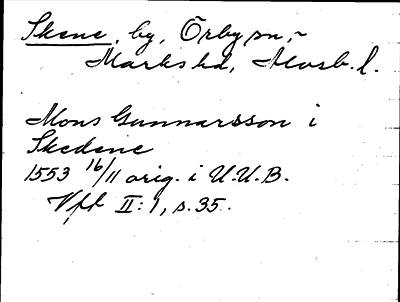 Skene, by, Örby sn,
Marks hd, Älvsb. l.
Mons Gunnarsson i
Skedene
1553 16/11 orig. i U.U.B.
Vfb II:1, s. 35.